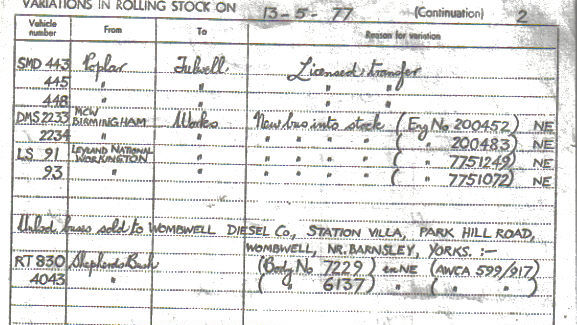 VARIATIONS IN ROLLING STOCK ON 13-5-77 (Continuation) 2
Vehicle number From To Reason for variation
SMD 443 Poplar Fulwell Licensed transfer
445 " " " "
448 " " " "
DMS2233 MCW BIRMINGHAM Works New bus into stock (Eng No 200452) NE
2234 " " " " " " ( " 200483) NE
LS 91 LEYLAND NATIONAL WORKINGTON " " " " " ( " 7751249) NE
93 " " " " " " ( " 7751072) NE
Unlicd buses sold to WOMBWELL DIESEL Co., STATION VILLA, PARK HILL ROAD,
WOMBWELL, NR. BARNSLEY, YORKS. :-
RT 830 Shepherds Bush (Body No 7229) ex NE (AWCA 599/917)
4043 " ( " 6137) " ( " " )